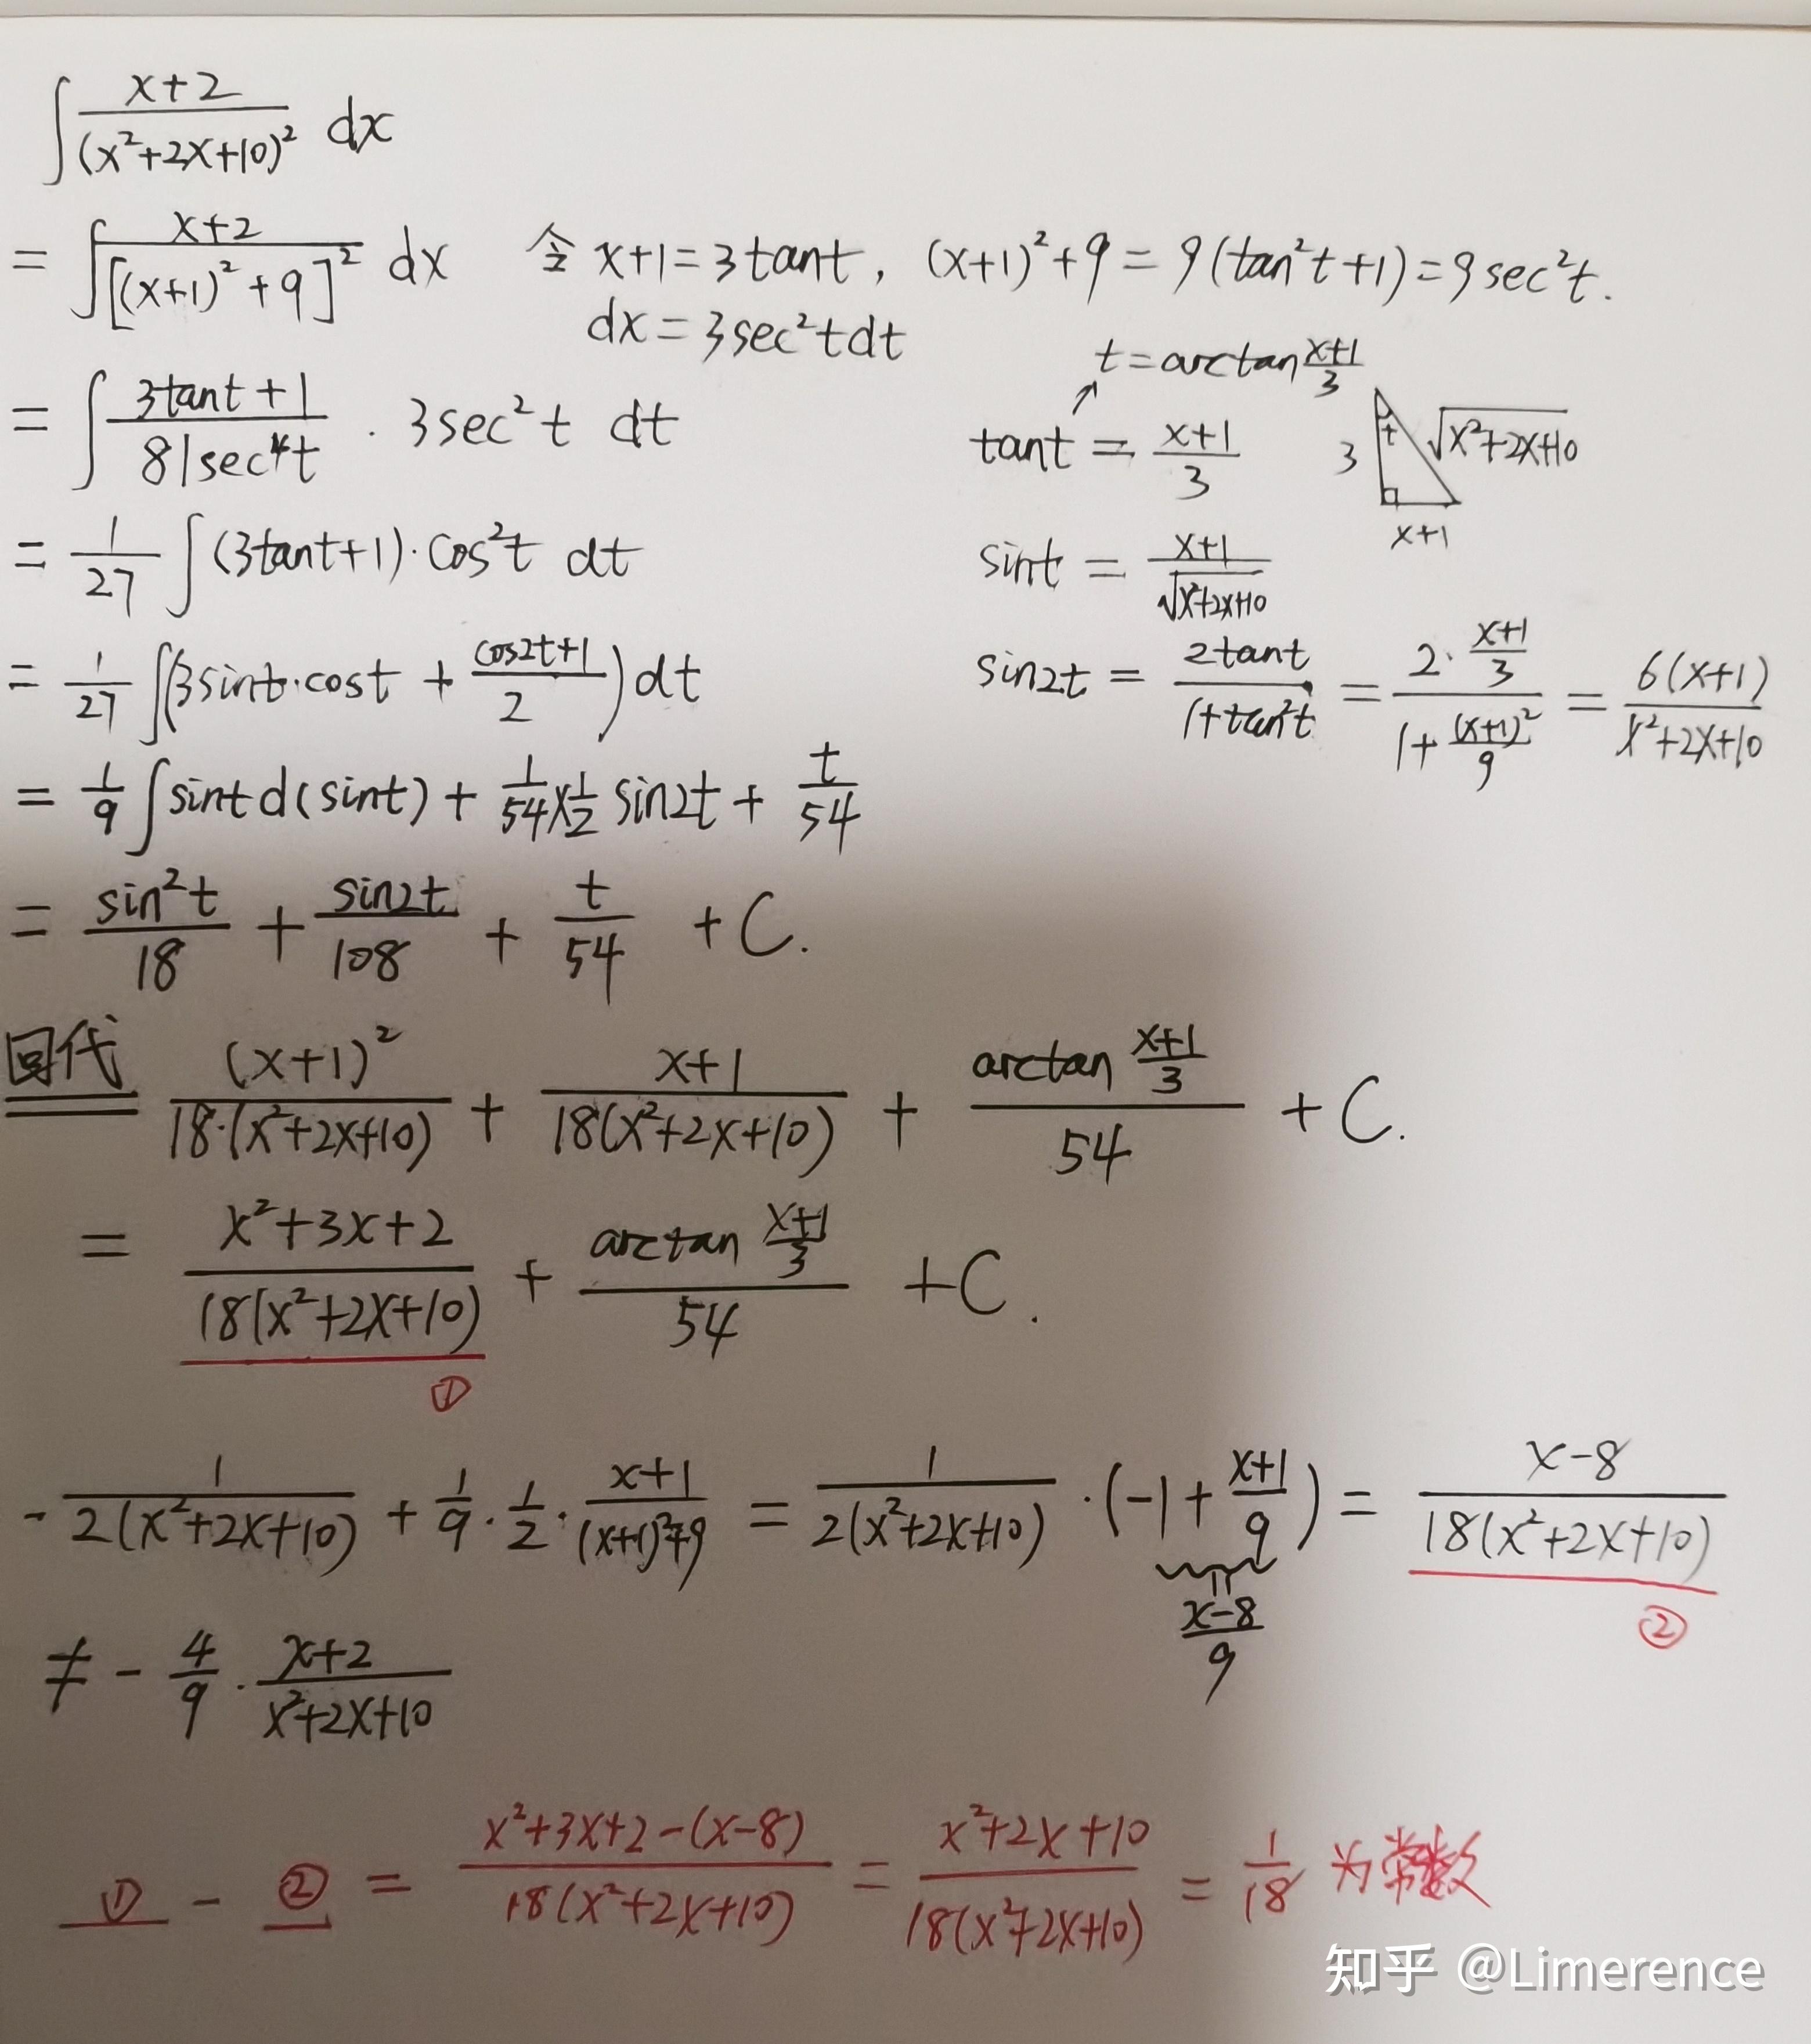 ∫ (x+2)/(x²+2x+10)² dx
= ∫ (x+2)/[(x+1)²+9]² dx 令 x+1=3tant, (x+1)²+9=9(tan²t+1)=9sec²t.
dx=3sec²tdt
t=arctan (x+1)/3
= ∫ (3tant+1)/(81sec⁴t) · 3sec²t dt
tant = (x+1)/3
3 t √(x²+2x+10)
x+1
= 1/27 ∫(3tant+1)·cos²t dt
sint = (x+1)/√(x²+2x+10)
= 1/27 ∫(3sint·cost + (cos2t+1)/2)dt
sin2t = 2tant/(1+tan²t) = (2·(x+1)/3)/(1+(x+1)²/9) = 6(x+1)/(x²+2x+10)
= 1/9 ∫sintd(sint) + 1/54×1/2 sin2t + t/54
= sin²t/18 + sin2t/108 + t/54 + C.
回代 (x+1)²/(18·(x²+2x+10)) + (x+1)/(18(x²+2x+10)) + (arctan (x+1)/3)/54 + C.
= (x²+3x+2)/(18(x²+2x+10)) + (arctan (x+1)/3)/54 + C.
①
- 1/(2(x²+2x+10)) + 1/9 · 1/2 · (x+1)/((x+1)²+9) = 1/(2(x²+2x+10)) · (-1 + (x+1)/9) = (x-8)/(18(x²+2x+10))
= (x-8)/9
②
≠ - 4/9 · (x+2)/(x²+2x+10)
① - ② = (x²+3x+2-(x-8))/(18(x²+2x+10)) = (x²+2x+10)/(18(x²+2x+10)) = 1/18 为常数
知乎 @Limerence